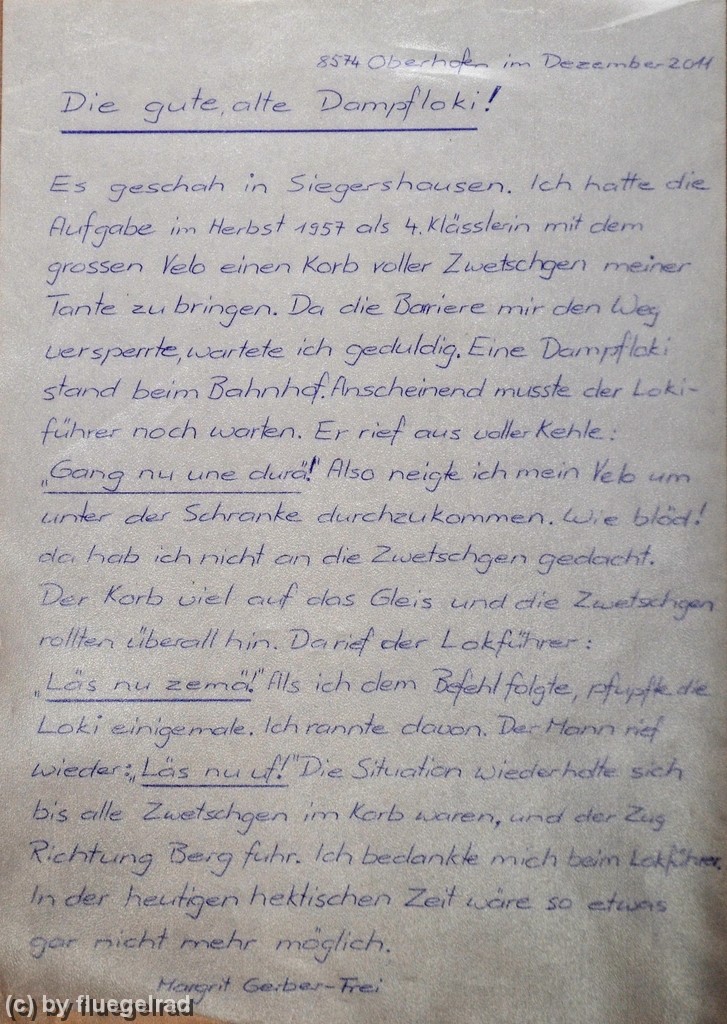 8574 Oberhofen im Dezember 2011
Die gute, alte Dampfloki!
Es geschah in Siegershausen. Ich hatte die
Aufgabe im Herbst 1957 als 4. Klässlerin mit dem
grossen Velo einen Korb voller Zwetschgen meiner
Tante zu bringen. Da die Barriere mir den Weg
versperrte, wartete ich geduldig. Eine Dampfloki
stand beim Bahnhof. Anscheinend musste der Loki-
führer noch warten. Er rief aus voller Kehle:
„Gang nu une durä!" Also neigte ich mein Velo um
unter der Schranke durchzukommen. Wie blöd!
da hab ich nicht an die Zwetschgen gedacht.
Der Korb viel auf das Gleis und die Zwetschgen
rollten überall hin. Da rief der Lokführer:
„Läs nu zemä!" Als ich dem Befehl folgte, pfupfte die
Loki einigemale. Ich rannte davon. Der Mann rief
wieder: „Läs nu uf!" Die Situation wiederholte sich
bis alle Zwetschgen im Korb waren, und der Zug
Richtung Berg fuhr. Ich bedankte mich beim Lokführer.
In der heutigen hektischen Zeit wäre so etwas
gar nicht mehr möglich.
Margrit Gerber-Frei
(c) by fluegelrad